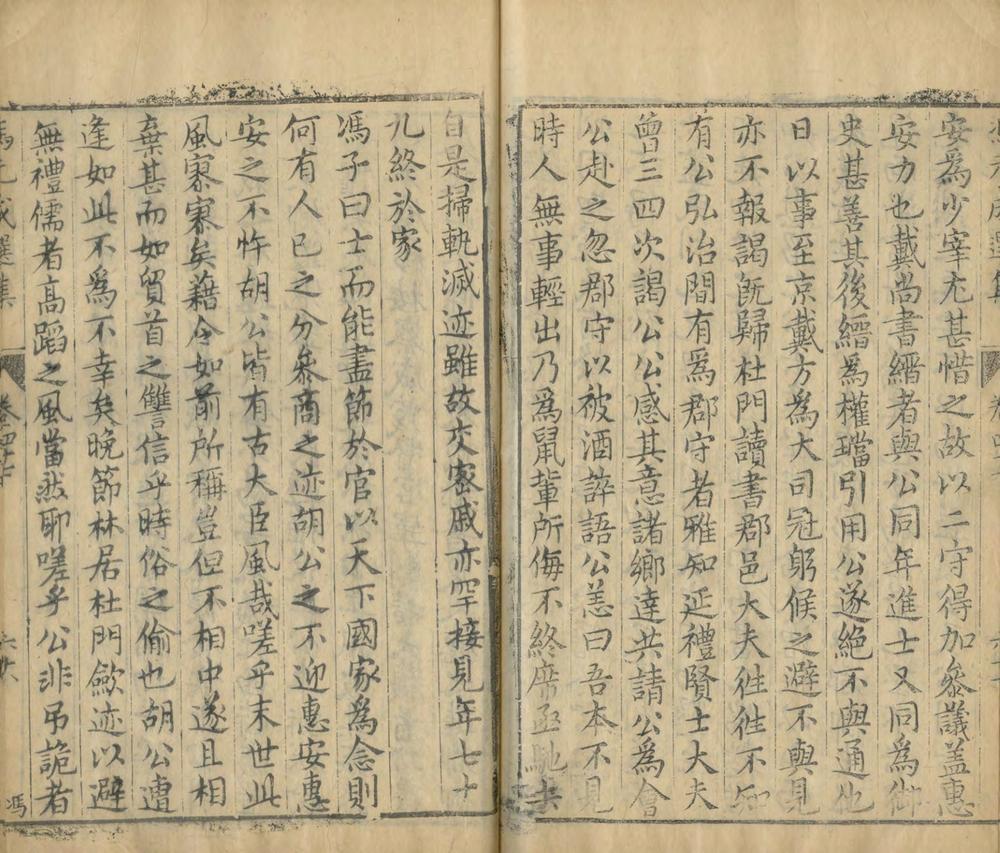 卷四
安為少宰尤甚惜之故以二守得加叅議盖惠
安力也戴尚書縉者與公同年進士又同為御
史甚善其後縉為權璫引用公遂絕不與通他
日以事至京戴方為大司冦躬候之避不與見
亦不報謁旣歸杜門讀書郡邑大夫徃徃不知
有公弘治間有為郡守者雅知延禮賢士大夫
曾三四次謁公公感其意諸鄉達共請公為會
公赴之忽郡守以被酒誶語公恙曰吾本不見
時人無事輕出乃為鼠輩所侮不終席亟馳去
自是掃軌滅迹雖故交宻戚亦罕接見年七十
九終於家
馮子曰士而能盡節於官以天下國家為念則
何有人已之分叅商之迹胡公之不迎惠安惠
安之不忤胡公皆有古大臣風哉嗟乎末世此
風寥寥矣藉令如前所稱豈但不相中遂且相
棄甚而如貿首之讐信乎時俗之偷也胡公遭
逢如此不為不幸矣晚節林居杜門歛迹以避
無禮儒者高蹈之風當然耶嗟乎公非吊詭者
馮元成選集
卷四十六
六十六
馮